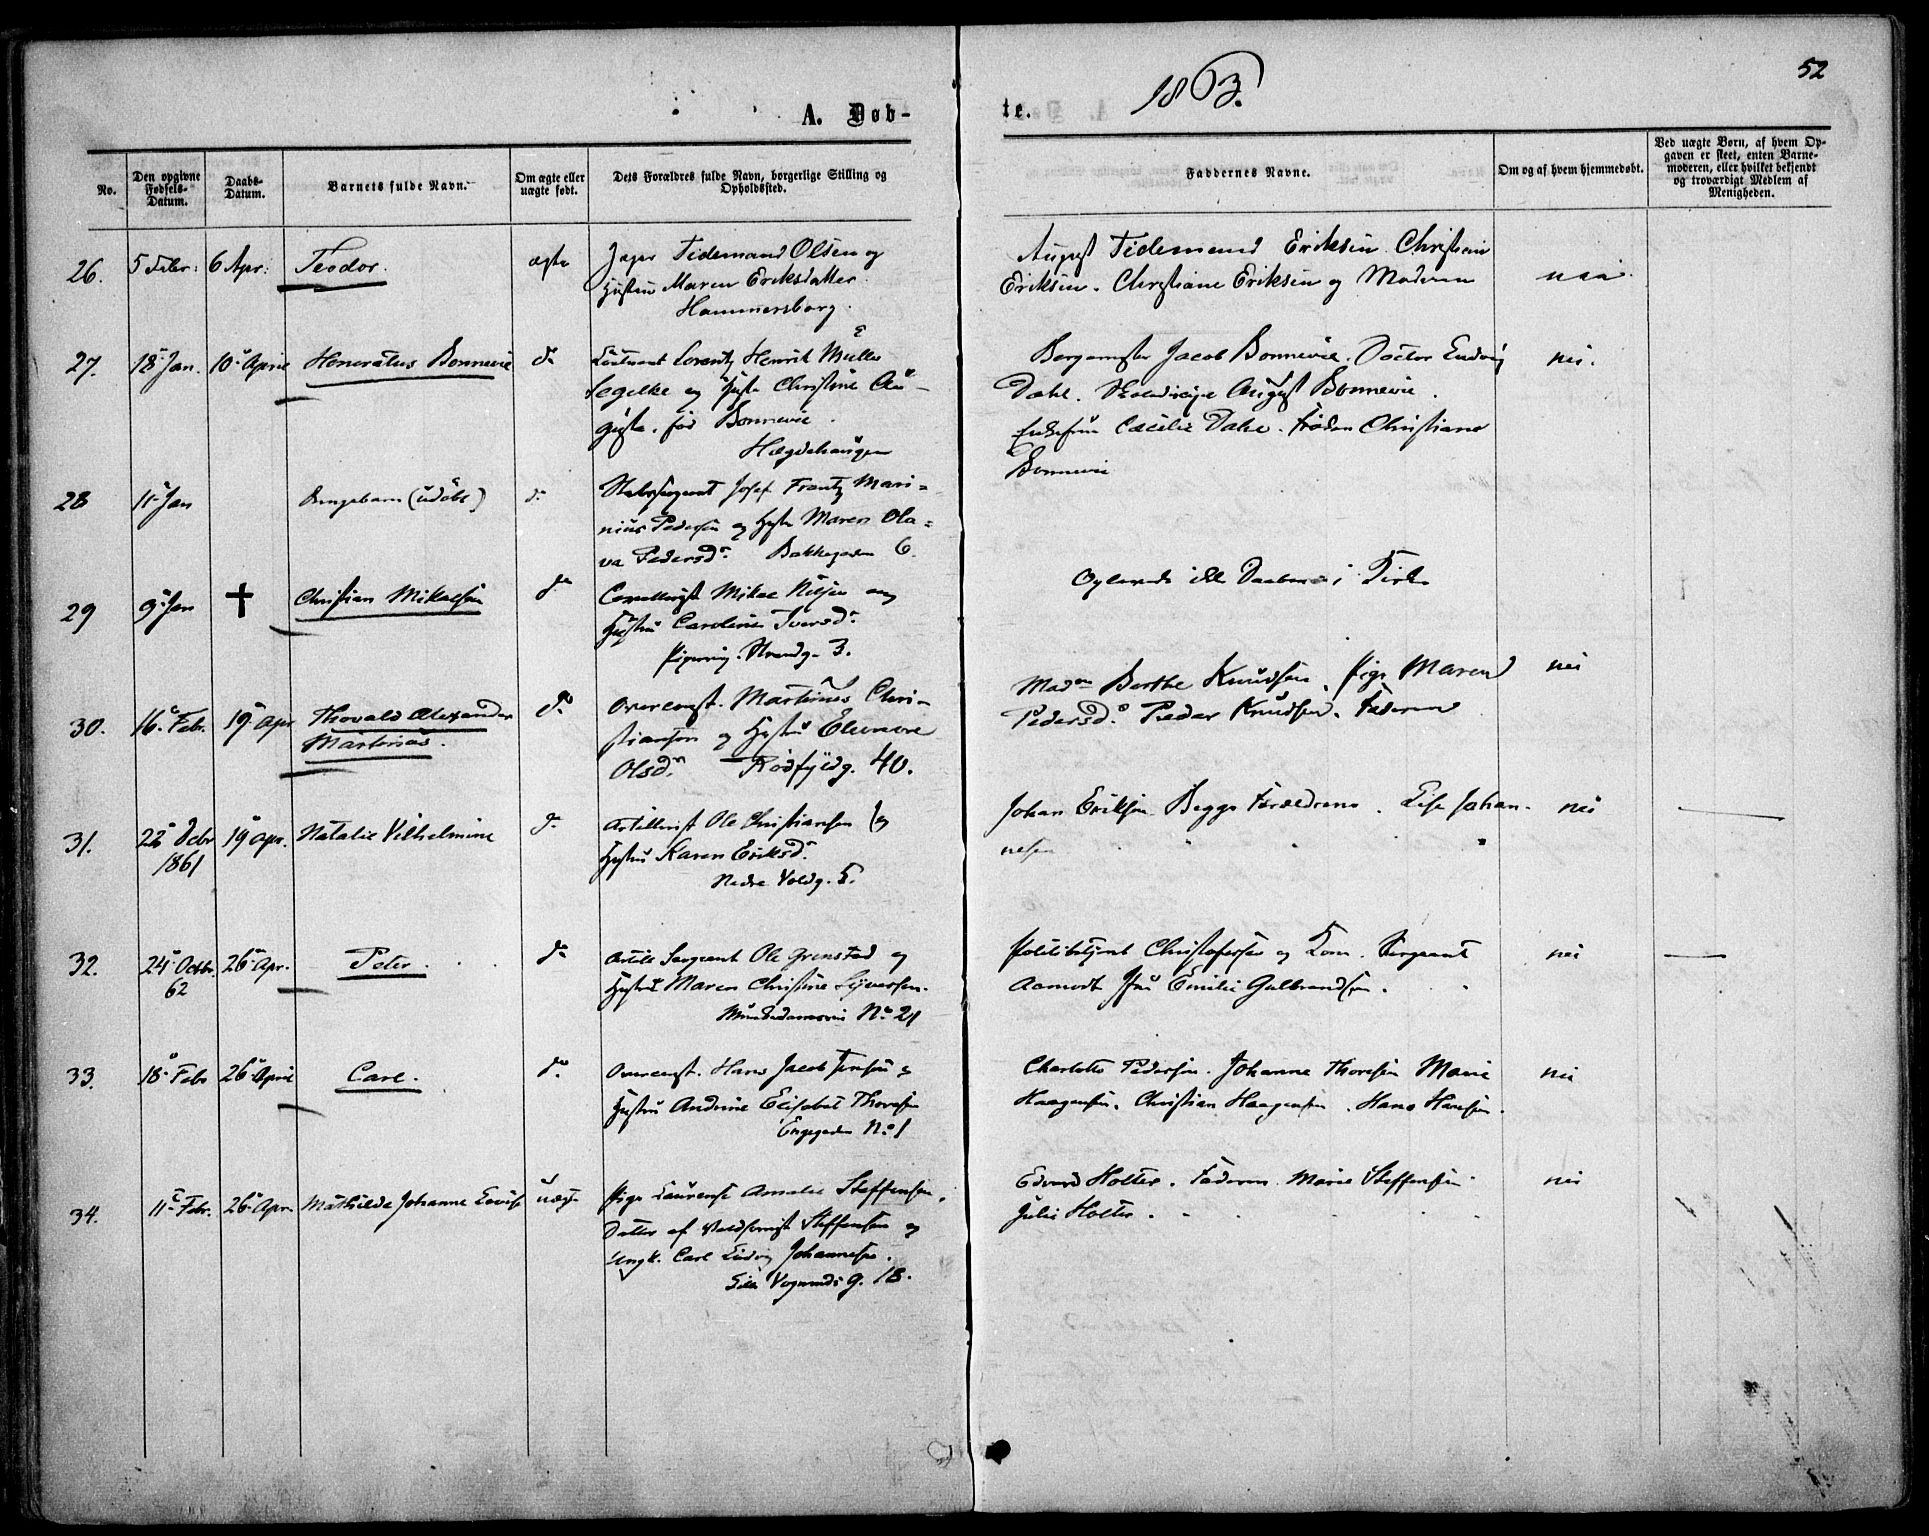 52
1863.
A. Døb-
te.
No.
Den opgivne Fødsels-Datum.
Daabs-Datum.
Barnets fulde Navn.
Om ægte eller uægte født.
Dets Forældres fulde Navn, borgerlige Stilling og Opholdssted.
Faddernes Navne.
Om og af hvem hjemmedøbt.
Ved uægte Børn, af hvem Opgaven er skeet, enten Barnemoderen, eller hvilket bekjendt og troværdigt Medlem af Menigheden.
26. 5 Febr: 6 Apr: Teodor. ægte
Tidemand Olsen og
Hustru Maren Eriksdatter.
Hammersborg.
August Tidemand Eriksen. Christian
Eriksen. Christiane Eriksen og Moderen
nei
27. 18 Jan. 10 April Honoratus Bonnevie do
Lorentz Henrik Müller
Segelke og Christine Au-
gusta. fød Bonnevie.
Hægdehaugen
Jacob Bonnevie. Doctor Ludvig
Dahl. August Bonnevie.
Cæcilie Dahl. Frøken Christiane
Bonnevie
nei.
28 11 Jan Drengebarn (udøbt) do
Josef Frantz Mari-
nius Pedersen og Maren Ola-
va Pedersdr. Bakkegaden 6.
29 9 Jan † Christian Mikalsen do
Nilsen og
Hustru Caroline Iversdr.
Strandg. 3.
i Kirke
30. 16. Febr. 19 Apr Thorvald Alexander
Martinus. do
Overconst. Martinus Chri-
stiansen og Hustru Eleonore
Olsdr. Rødfyldg. 40.
Madm Berthe Knudsen. Pige Maren
Pedersdr. Peder Knudsen. Faderen
nei
31. 22 Decbr 1861 19 Apr. Natalie Vilhelmine do
Artillerist Ole Christiansen og
Hustru Karen Eriksdr.
Nedre Voldg. 5.
Johan Eriksen Begge Forældrene. Lise Johan-
nesen
nei
32. 24 Octbr. 62 26 Apr. Peter. do
Artill Sergeant Ole Grenstad og
Hustru Maren Christine Syversen.
No 21
Politibetjent Christofersen og Kom. Sergeant
Aamodt. Emilie Gulbrandsen.
nei
33. 18 Febr 26 April Carl. do
Overconst. Hans Jacob Jensen &
Hustru Andrine Elisabet Thoresen
Engegaden No 1
Charlotte Pedersen. Johanne Thoresen Marie
Haagensen. Christian Haagensen. Hans Hansen.
nei
34. 11 Febr. 26 Apr. Mathilde Johanne Lovise uægte
Pige Laurense Amalie Steffensen.
Datter af Steffensen og
Ungk. Carl Ludvig Johannesen.
Lille Vognmandsg. 18.
Edvard Holter. Faderen. Marie Steffensen.
Julie Holter.
nei